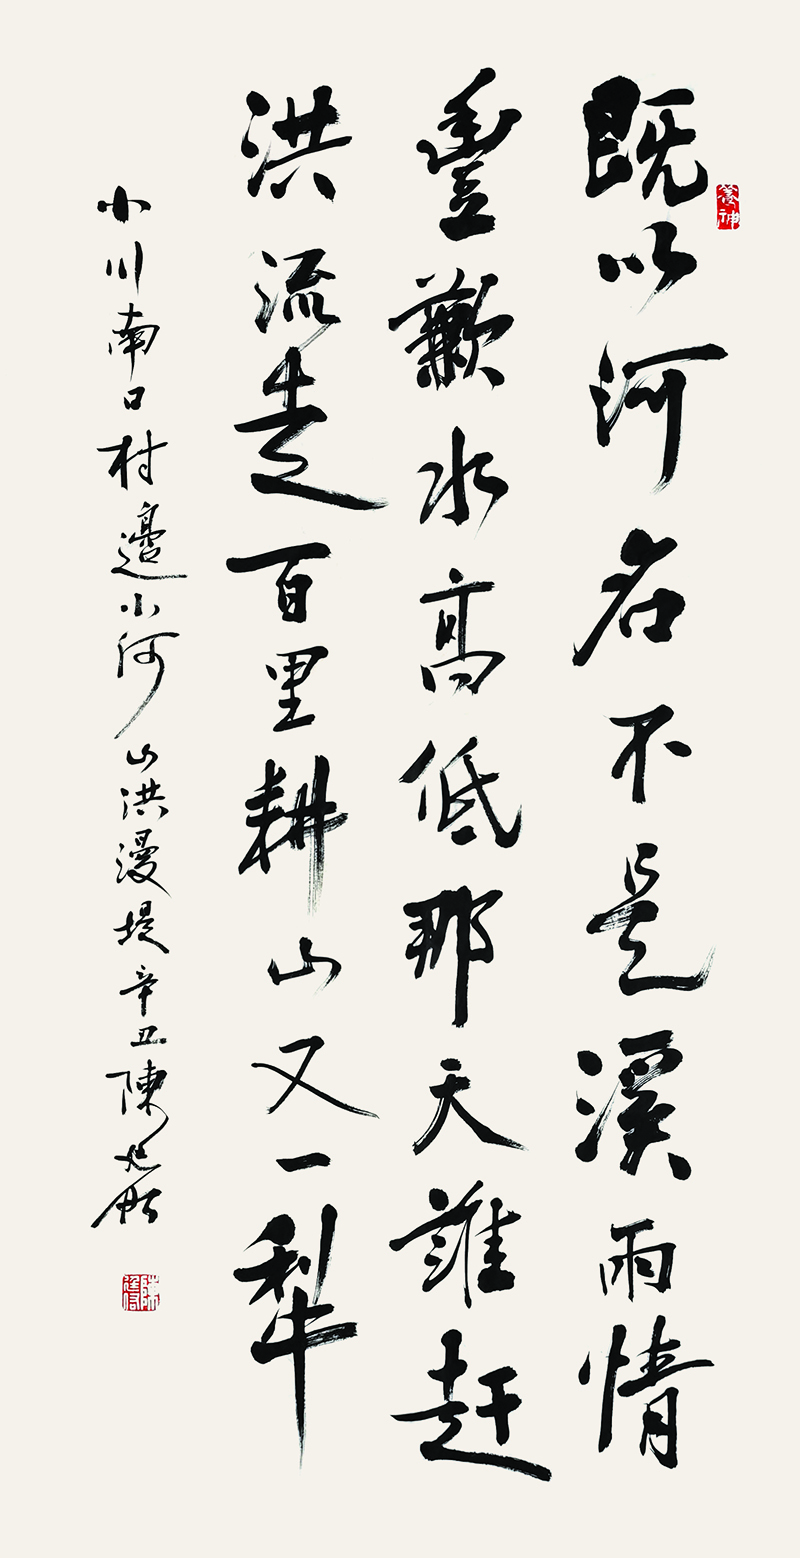 既以河名不是溪雨情
豐歉水高低那天誰赶
洪流走百里耕山又一犁
小川南口村邊小河山洪漫堤辛丑陳
養神